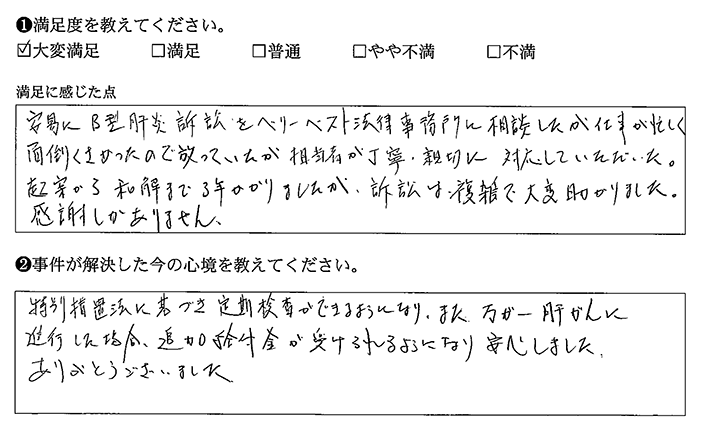 ❶満足度を教えてください。
☑大変満足 □満足 □普通 □やや不満 □不満
満足に感じた点
容易にB型肝炎訴訟をベリーベスト法律事務所に相談したが仕事が忙しく
面倒くさかったので放っていたが担当者が丁寧・親切に対応していただいた。
起案から和解まで3年かかりましたが、訴訟は複雑で大変助かりました。
感謝しかありません、
❷事件が解決した今の心境を教えてください。
特別措置法に基づき定期検査ができるようになり、また万が一肝がんに
進行した場合、追加給付金が受けられるようになり安心しました、
ありがとうございました